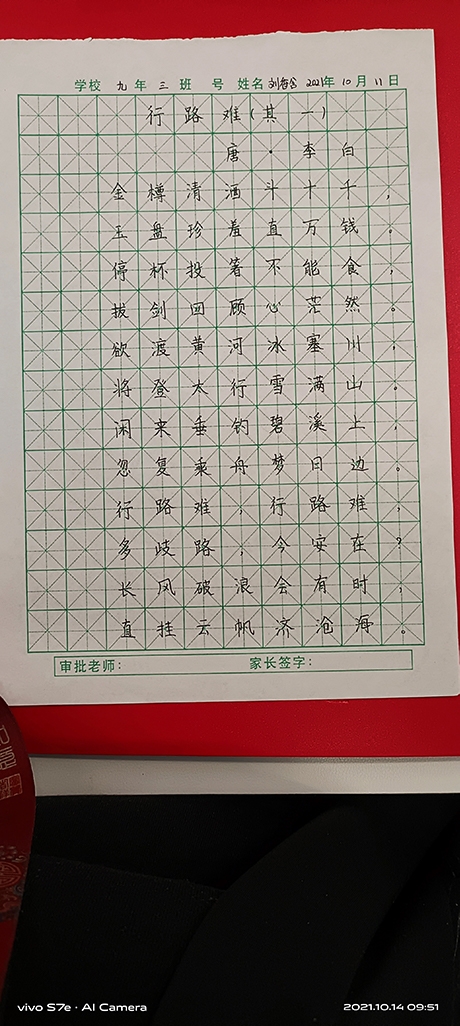 学校 九 年 三 班 号 姓名 刘香含 2021年 10 月 11 日
行路难（其一）
唐·李白
金樽清酒斗十千，
玉盘珍羞直万钱。
停杯投箸不能食，
拔剑四顾心茫然。
欲渡黄河冰塞川，
将登太行雪满山。
闲来垂钓碧溪上，
忽复乘舟梦日边。
行路难，行路难，
多歧路，今安在？
长风破浪会有时，
直挂云帆济沧海。
审批老师： 家长签字：
vivo S7e · AI Camera 2021.10.14 09:51